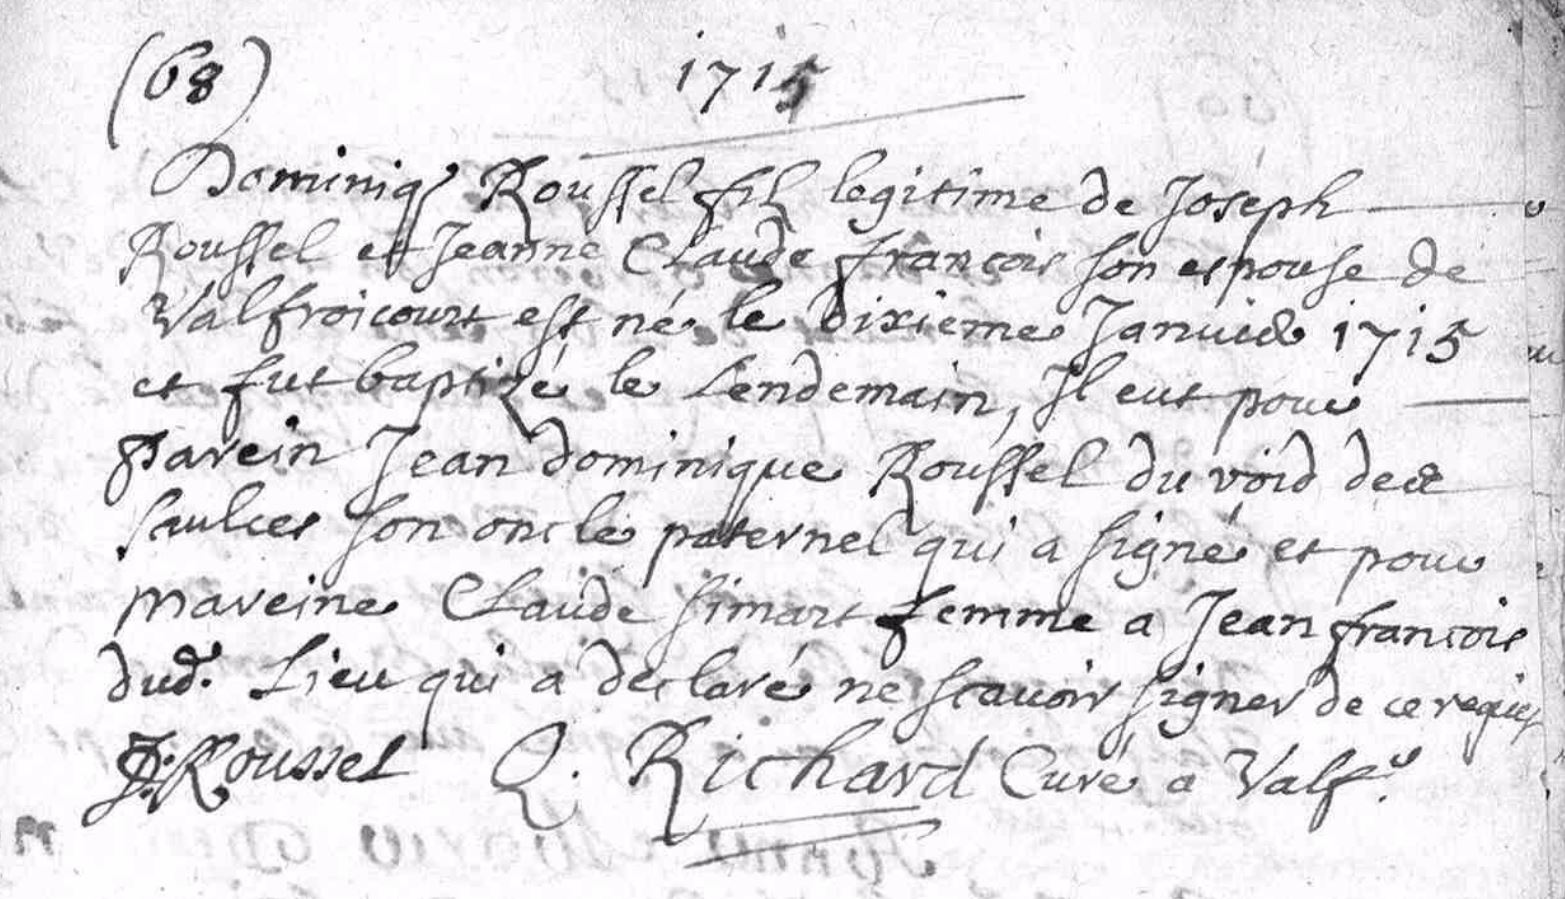 (68) 1715
Dominiq Roussel fils legitime de Joseph
Roussel et Jeanne Claude françois son espouse de
Valfroicourt est né le dixieme Janvier 1715
et fut baptizé le Lendemain, Il eut pour
parein Jean dominique Roussel du void de
saulces son oncle paternel qui a signé et pour
mareine Claude simart femme a Jean françois
dud. Lieu qui a declaré ne scavoir signer de ce
Roussel Q. Richard Curé a Valf.